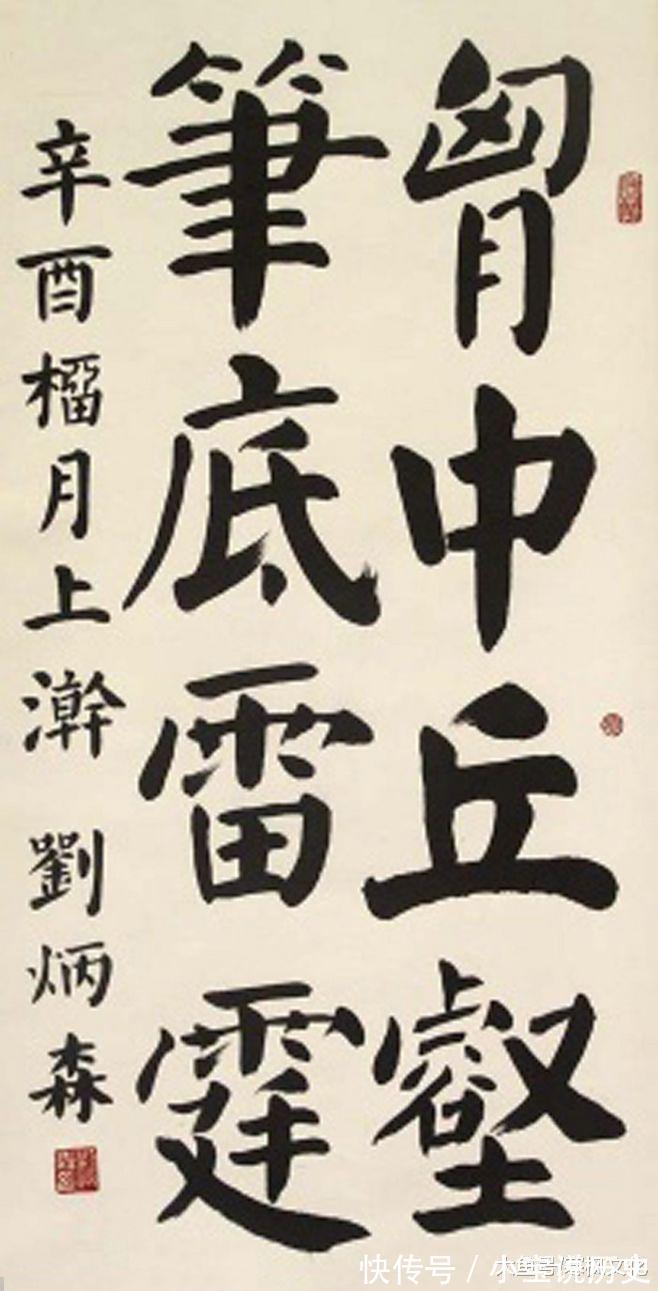 胷中丘壑
筆底雷霆
辛酉榴月上澣 劉炳森
快传号 / 小宝说历史